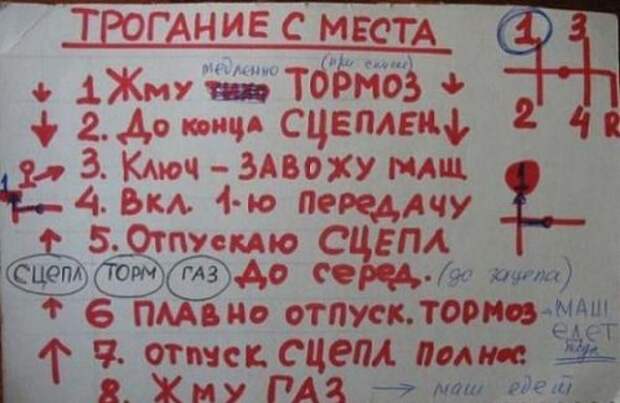 ТРОГАНИЕ С МЕСТА
1 3
2 4 R
медленно
1 Жму ТОРМОЗ
2. До конца СЦЕПЛЕН.
3. Ключ – ЗАВОЖУ МАШ
1 4. ВКЛ. 1-ю ПЕРЕДАЧУ
1
5. Отпускаю СЦЕПЛ
СЦЕПЛ ТОРМ ГАЗ До серед. (до зацепа)
6 ПЛАВНО ОТПУСК. ТОРМОЗ - МАШ
ЕДЕТ
7. ОТПУСК СЦЕПЛ ПОЛНОС.
8. Жму ГАЗ → маш едет